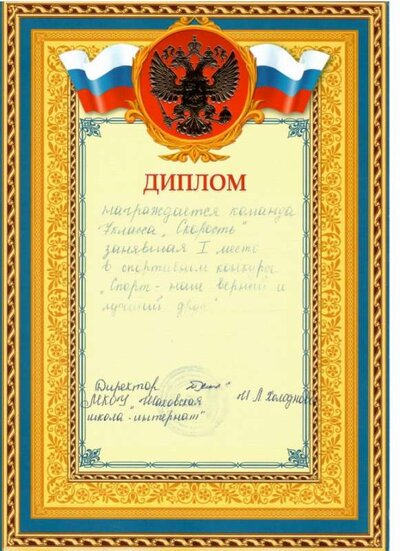 ДИПЛОМ
награждается команда
класса „Скорость"
занявшая I место
в спортивном конкурсе
„Спорт - наш верный и
лучший друг"
Директор
МКОУ „Шаховская
школа-интернат"